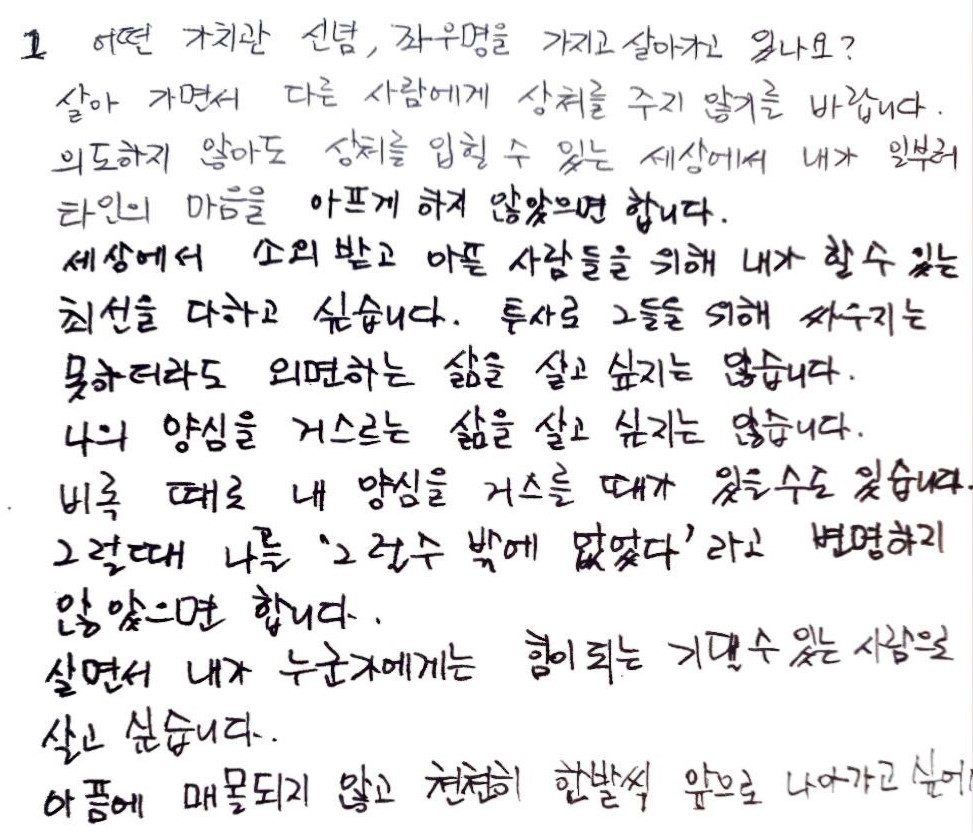 1 어떤 가치관 신념, 좌우명을 가지고 살아가고 있나요?
살아 가면서 다른 사람에게 상처를 주지 않기를 바랍니다.
의도하지 않아도 상처를 입힐 수 있는 세상에서 내가 일부러
타인의 마음을 아프게 하지 않았으면 합니다.
세상에서 소외 받고 아픈 사람들을 위해 내가 할 수 있는
최선을 다하고 싶습니다. 투사로 그들을 위해 싸우지는
못하더라도 외면하는 삶을 살고 싶지는 않습니다.
나의 양심을 거스르는 삶을 살고 싶지는 않습니다.
비록 때로 내 양심을 거스를 때가 있을수도 있습니다.
그럴때 나를 '그럴수 밖에 없었다' 라고 변명하지
않았으면 합니다.
살면서 내가 누군가에게는 힘이 되는 기댈 수 있는 사람으로
살고 싶습니다.
아픔에 매몰되지 않고 천천히 한발씩 앞으로 나아가고 싶어